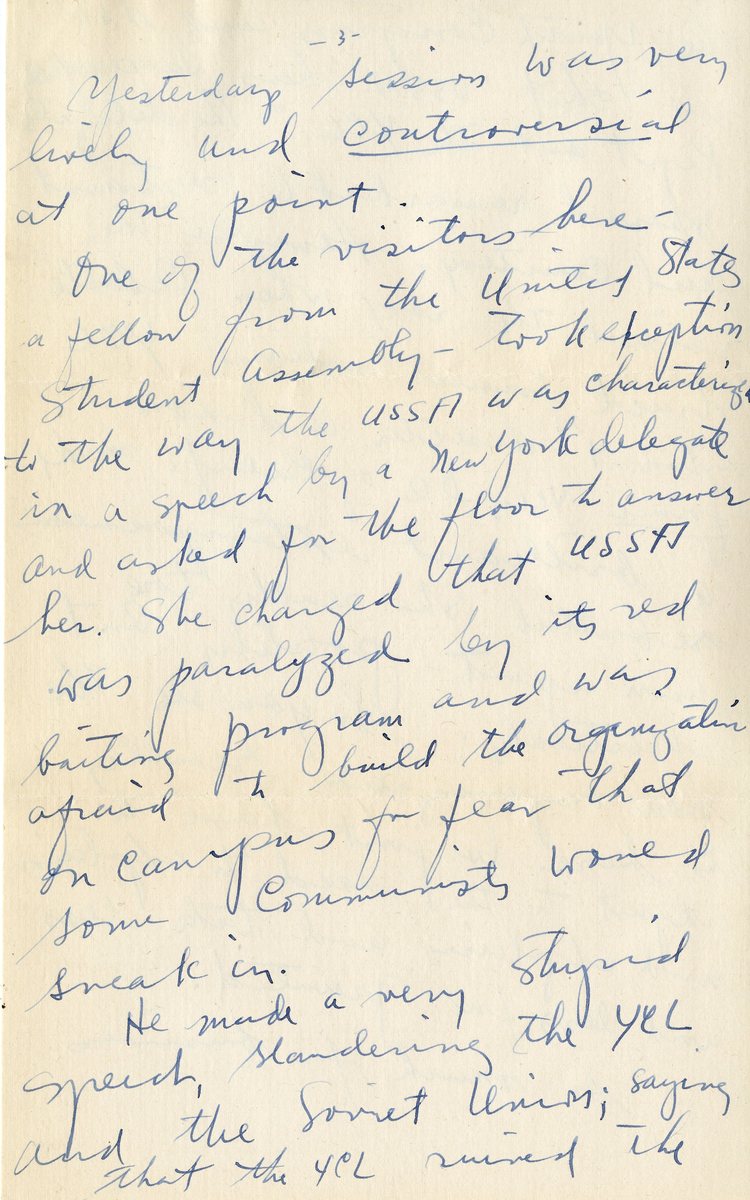 -3-
Yesterdays session was very
lively and controversial
at one point.
One of the visitors here -
a fellow from the United States
Student Assembly - took exception
to the way the USSA was characterized
in a speech by a New York delegate
and asked for the floor to answer
her. She charged that USSA
was paralyzed by its red
baiting program and was
afraid to build the organization
on campus for fear that
some Communists would
sneak in.
He made a very stupid
speech, slandering the YCL
and the Soviet Union; saying
that the YCL ruined the